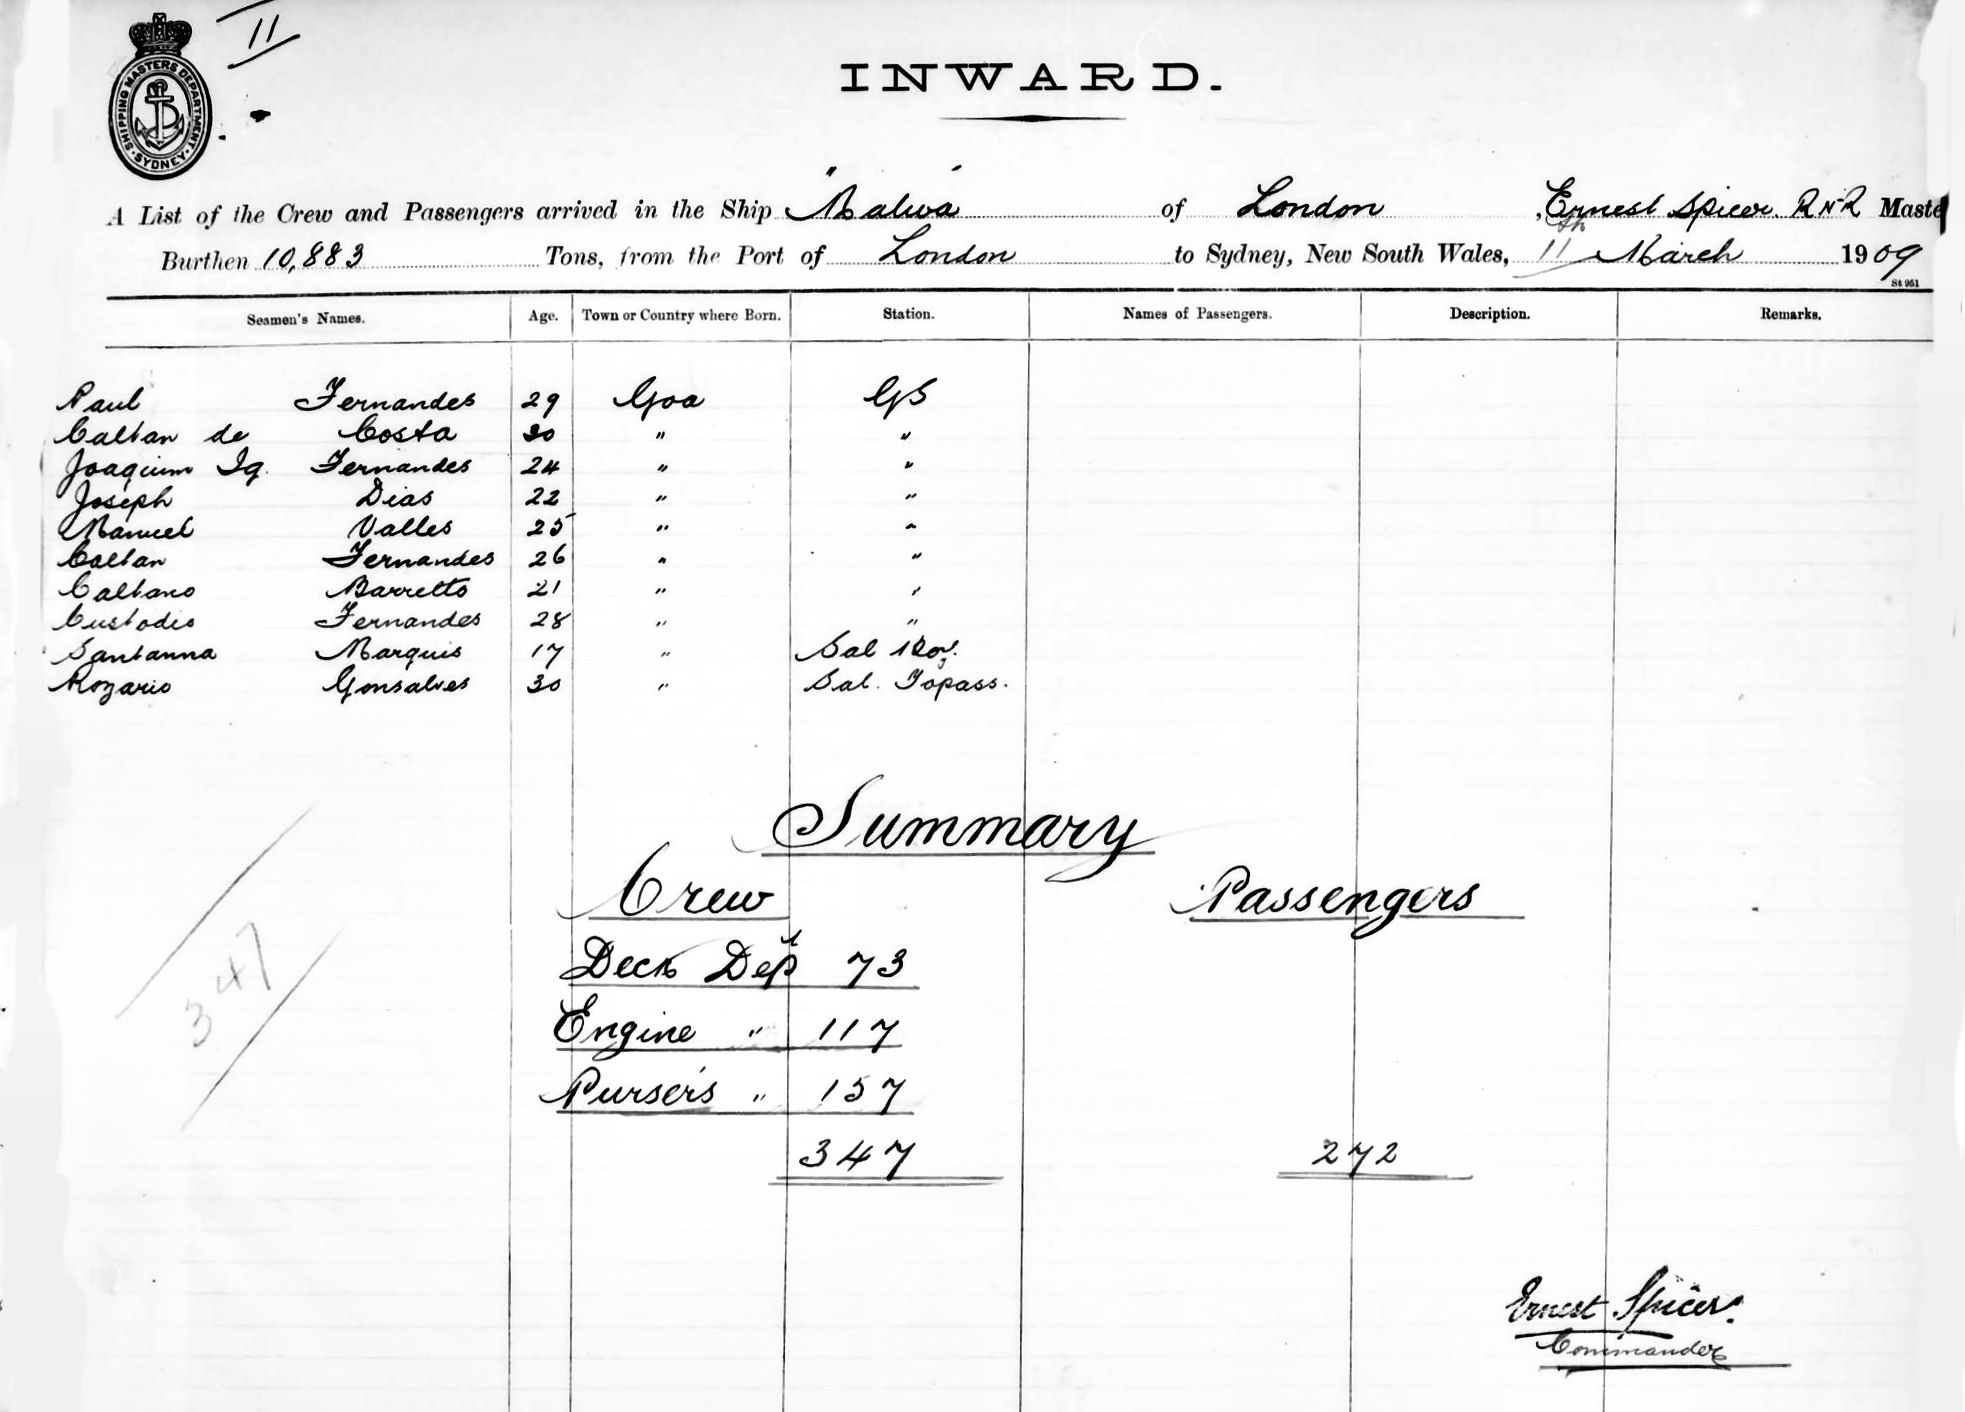 11
SHIPPING MASTERS DEPARTMENT
SYDNEY
INWARD.
A List of the Crew and Passengers arrived in the Ship "Malwa" of London, Ernest Spicer RNR Maste
Burthen 10,883 Tons, from the Port of London to Sydney, New South Wales, 11th March 1909
St 951
Seamen's Names. Age. Town or Country where Born. Station. Names of Passengers. Description. Remarks.
Paul Fernandes 29 Goa GS
Caitan de Costa 30 " "
Joaquim Ig. Fernandes 24 " "
Joseph Dias 22 " "
Manuel Valles 25 " "
Caitan Fernandes 26 " "
Caitano Barretto 21 " "
Custodio Fernandes 28 " "
Santanna Marquis 17 " Sal Boy.
Rozario Gonsalves 30 " Sal. Topass.
Summary
Crew Passengers
Deck Dept 73
Engine " 117
Purser's " 157
347 272
347
Ernest Spicer.
Commander